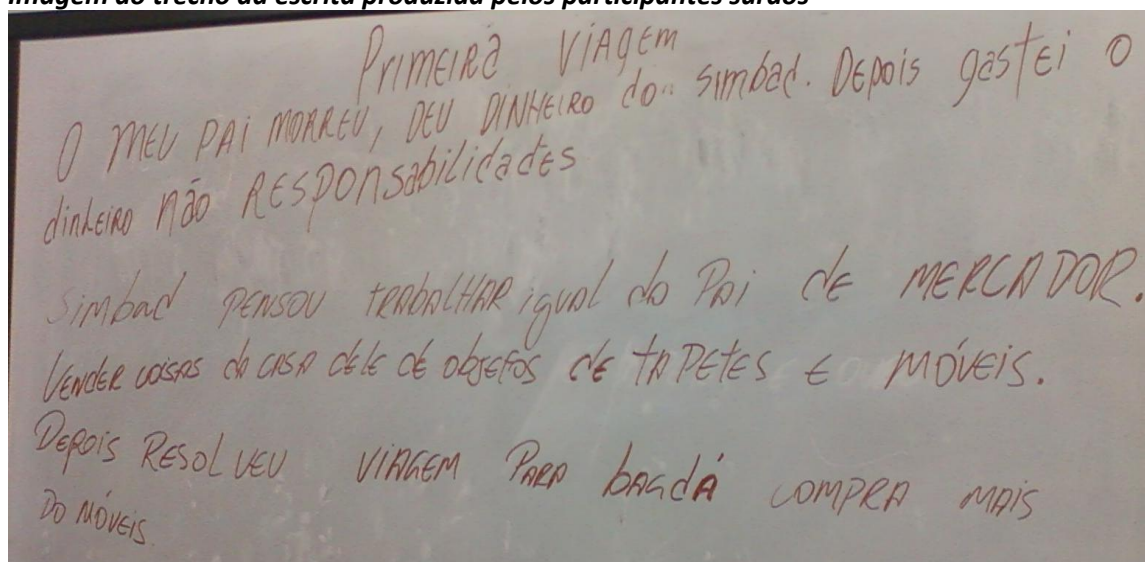 Imagem do trecho da escrita produzida pelos participantes surdos
Primeira Viagem
O MEU PAI MORREU, DEU DINHEIRO do simbad. Depois gastei o
dinheiro não RESPONsabilidades
Simbad PENSOU TRABALHAR igual do PAi de MERCADOR.
VENDER coisas da CASA dele de objetos de TAPETES E MÓVEIS.
Depois RESOLVEU VIAGEM PARA bagdá COMPRA MAIS
DO MÓVEIS.